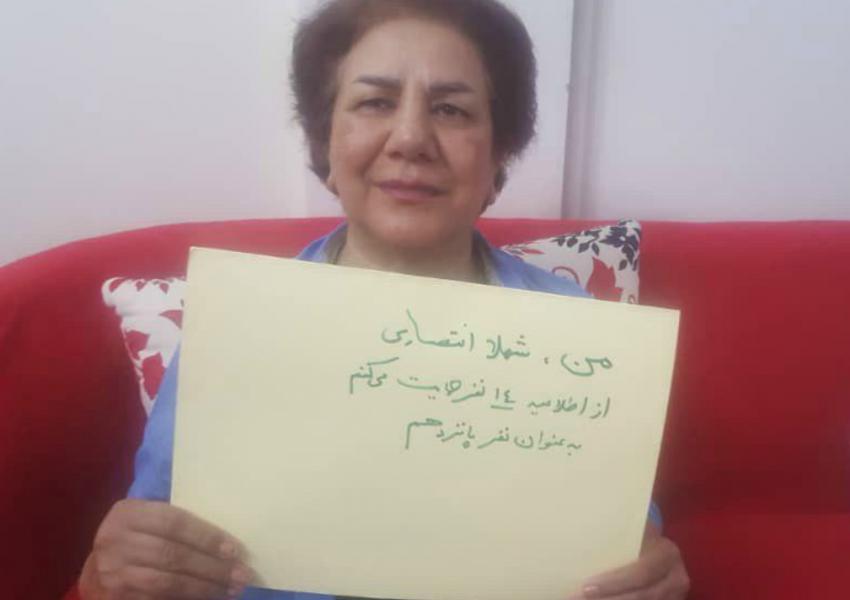 من، شهلا انتصاری
از اطلاعیه ١٤ نفر حمایت می‌کنم
به عنوان نفر پانزدهم